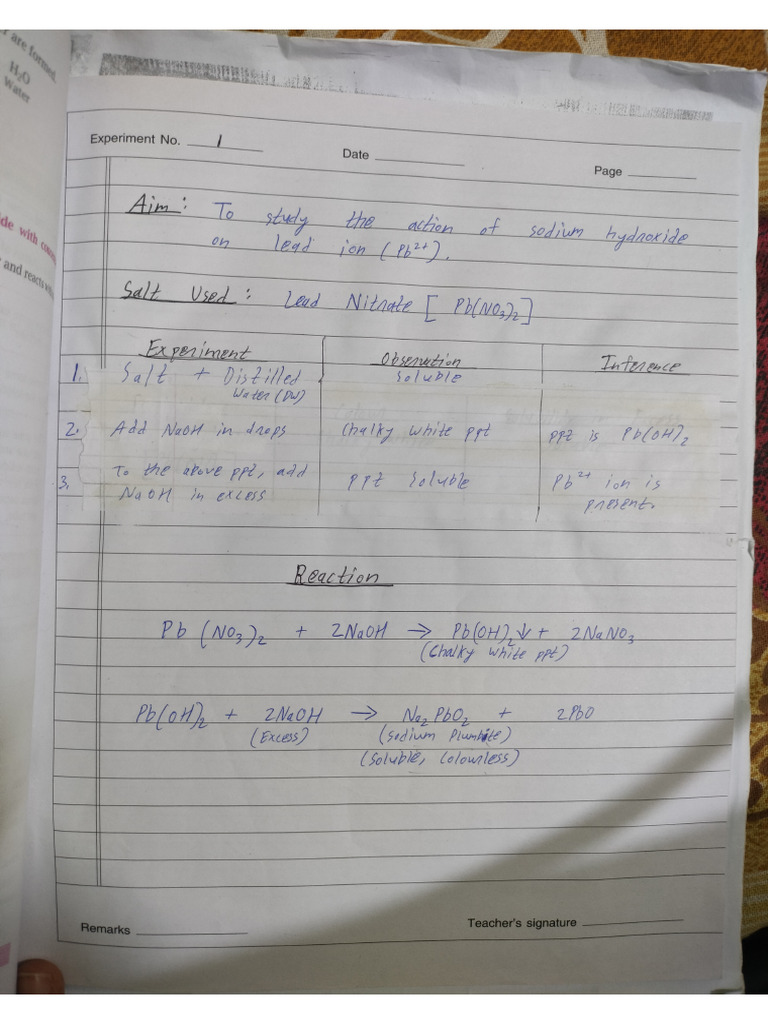 r are formed
H₂O
Water
de with conc
and reacts w
Experiment No. 1
Date
Page
Aim: To study the action of sodium hydroxide
on lead ion (Pb²⁺).
Salt Used: Lead Nitrate [Pb(NO₃)₂]
Experiment Observation Inference
1. Salt + Distilled Water (DW) Soluble
2. Add NaOH in drops Chalky white ppt ppt is Pb(OH)₂
3. To the above ppt, add NaOH in excess ppt soluble Pb²⁺ ion is present.
Reaction
Pb(NO₃)₂ + 2NaOH → Pb(OH)₂↓ + 2NaNO₃
(Chalky white ppt)
Pb(OH)₂ + 2NaOH → Na₂PbO₂ + 2PbO
(Excess) (Sodium Plumbite)
(Soluble, Colourless)
Remarks
Teacher's signature